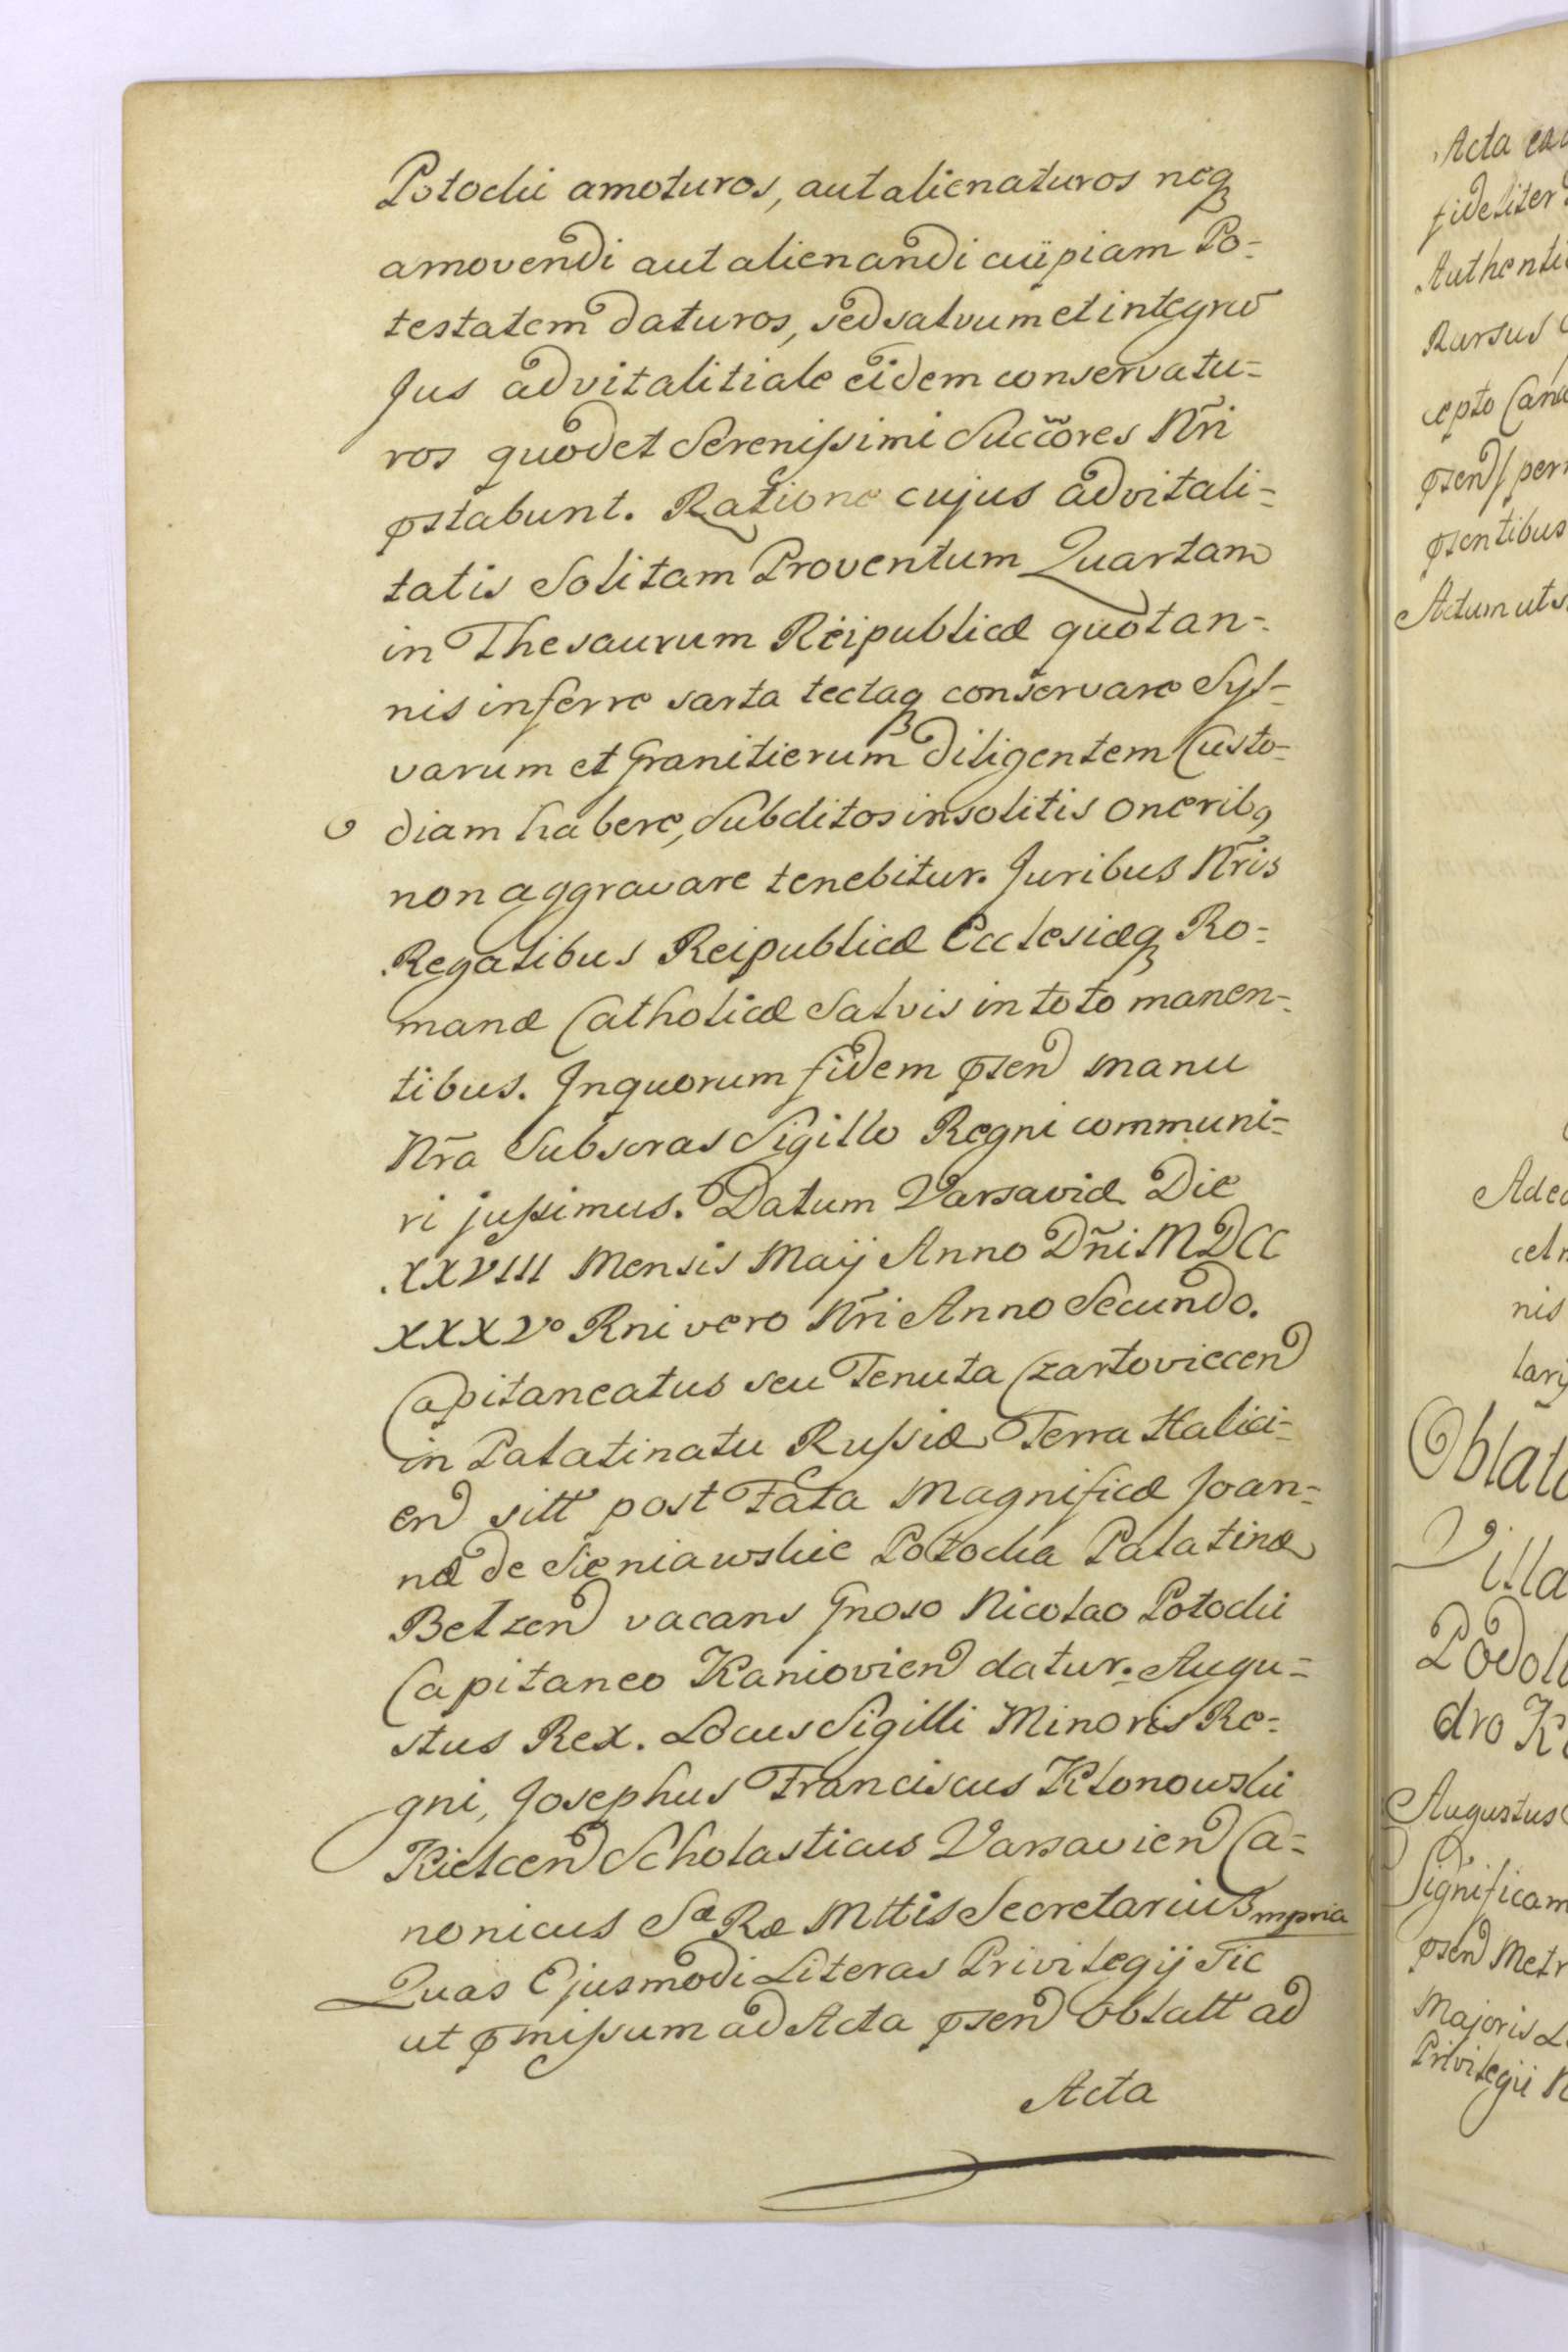 Potocki amoturos, aut alienaturos neq
amovendi aut alienandi cuipiam Po-
testatem daturos, sed salvum et integrū
Jus advitalitiale eidem conservatu=
ros quod et Serenissimi Succōres Nr̃i
pstabunt. Ratione cujus advitali=
tatis Solitam Proventum Quartam
in Thesaurum Reipublicæ quotan=
nis inferre sarta tectaq conservare Syl-
varum et Granitierum diligentem Custo-
diam habere, Subditos insolitis onerib9
non aggravare tenebitur. Juribus Nr̃is
Regalibus Reipublicæ Ecclesiæq Ro=
manæ Catholicæ Salvis in toto manen=
tibus. In quorum fidem psen manu
Nr̃a Subscras Sigillo Regni communi=
ri jussimus. Datum Varsaviæ Die
XXVIII Mensis Maij Anno Dñi MDCC
XXXVo Rni vero Nr̃i Anno Secundo.
Capitaneatus seu Tenuta Czartoviecen
in Palatinatu Russiæ Terra Halici=
en sitt post Fata Magnificæ Joan=
næ de Sieniawskie Potocka Palatinæ
Belzen vacans Gnoso Nicolao Potocki
Capitaneo Kaniovien datur. Augu=
stus Rex. Locus Sigilli Minoris Re=
gni, Josephus Franciscus Klonowski
Kielcen Scholasticus Varsavien Ca=
nonicus Sæ Ræ Mttis Secretarius mpria
Quas Ejusmodi Literas Privilegij Sic
ut pmissum ad Acta psen oblatt ad
Acta
Acta
fideliter
Authenti
Rursus
cepto Canc
psen per
psentibus
Actum ut s
nis
Oblat
Villa
Podol
dro K
Augustus
Significam
psen Metr
Majoris L
Privilegii N